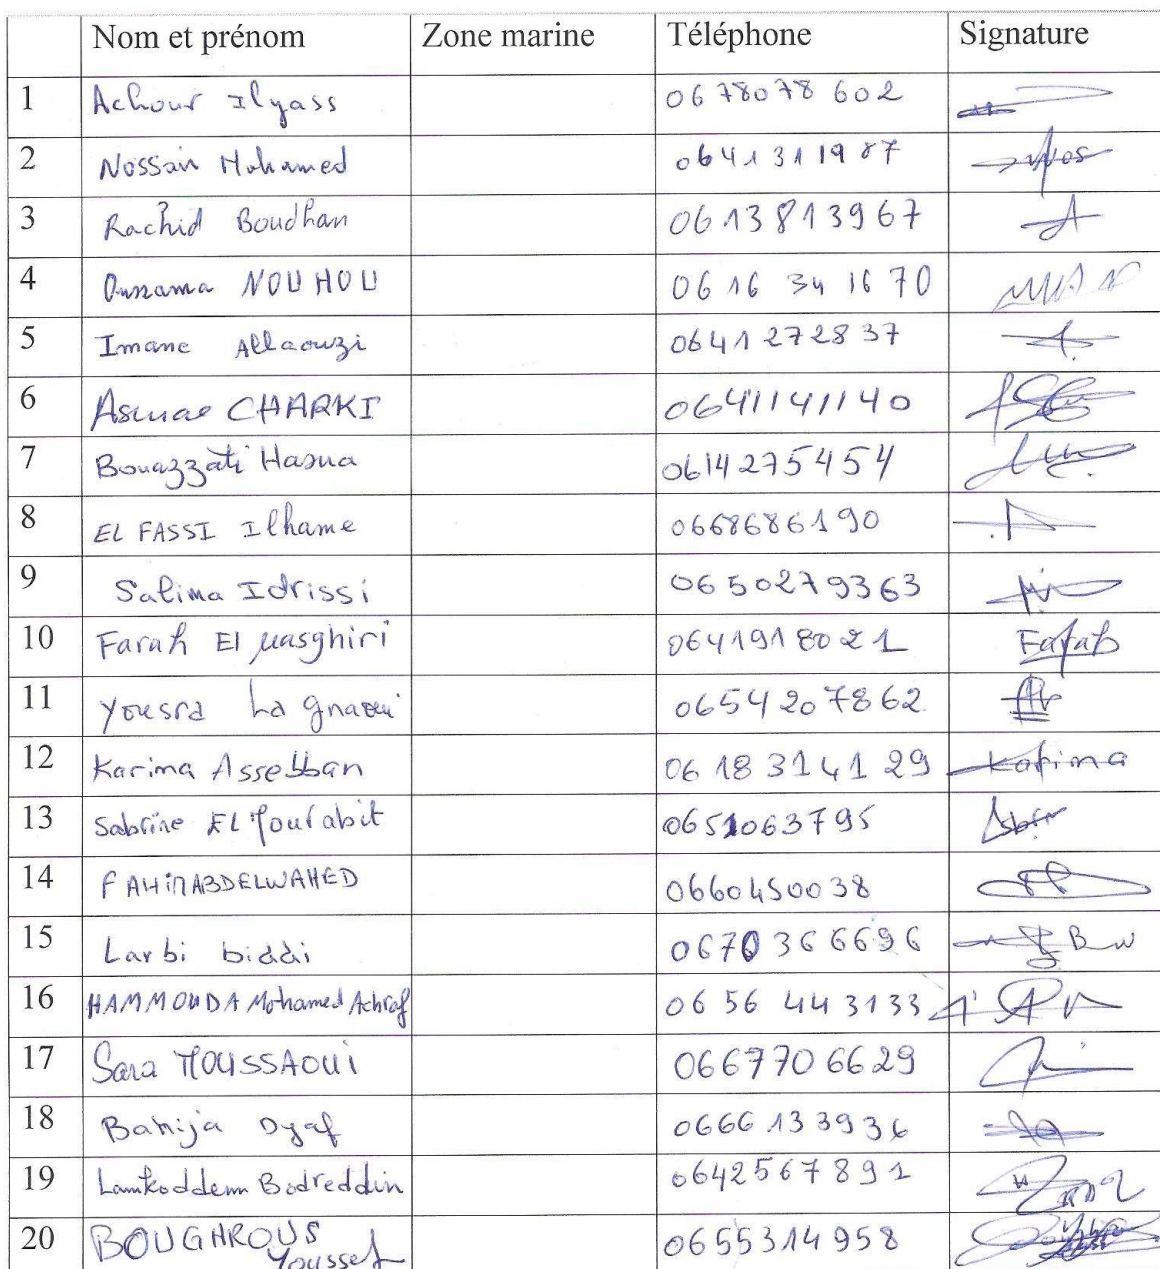 Nom et prénom Zone marine Téléphone Signature
1 Achour Ilyass 0678078602
2 Nossair Mohamed 0641311987
3 Rachid Boudhan 0613813967
4 Oussama NOUHOU 06 16 34 16 70
5 Imane Allaouzi 0641272837
6 Asmae CHARKI 0641141140
7 Bouazzati Hasna 0614275454
8 EL FASSI Ilhame 0668686190
9 Salima Idrissi 0650279363
10 Farah El masghiri 0641918021 Farah
11 Yousra Lagnaoui 0654207862
12 Karima Assebban 06 18 31 41 29 Karima
13 Sabrine EL Mourabit 0651063795
14 FAHIM ABDELWAHED 0660450038
15 Larbi biddi 0670366696
16 HAMMOUDA Mohamed Achraf 06 56 44 3133
17 Sara MOUSSAOUI 0667706629
18 Bahija Dyaf 0666133936
19 Lamkoddem Badreddin 0642567891
20 BOUGHROUS Youssef 0655314958